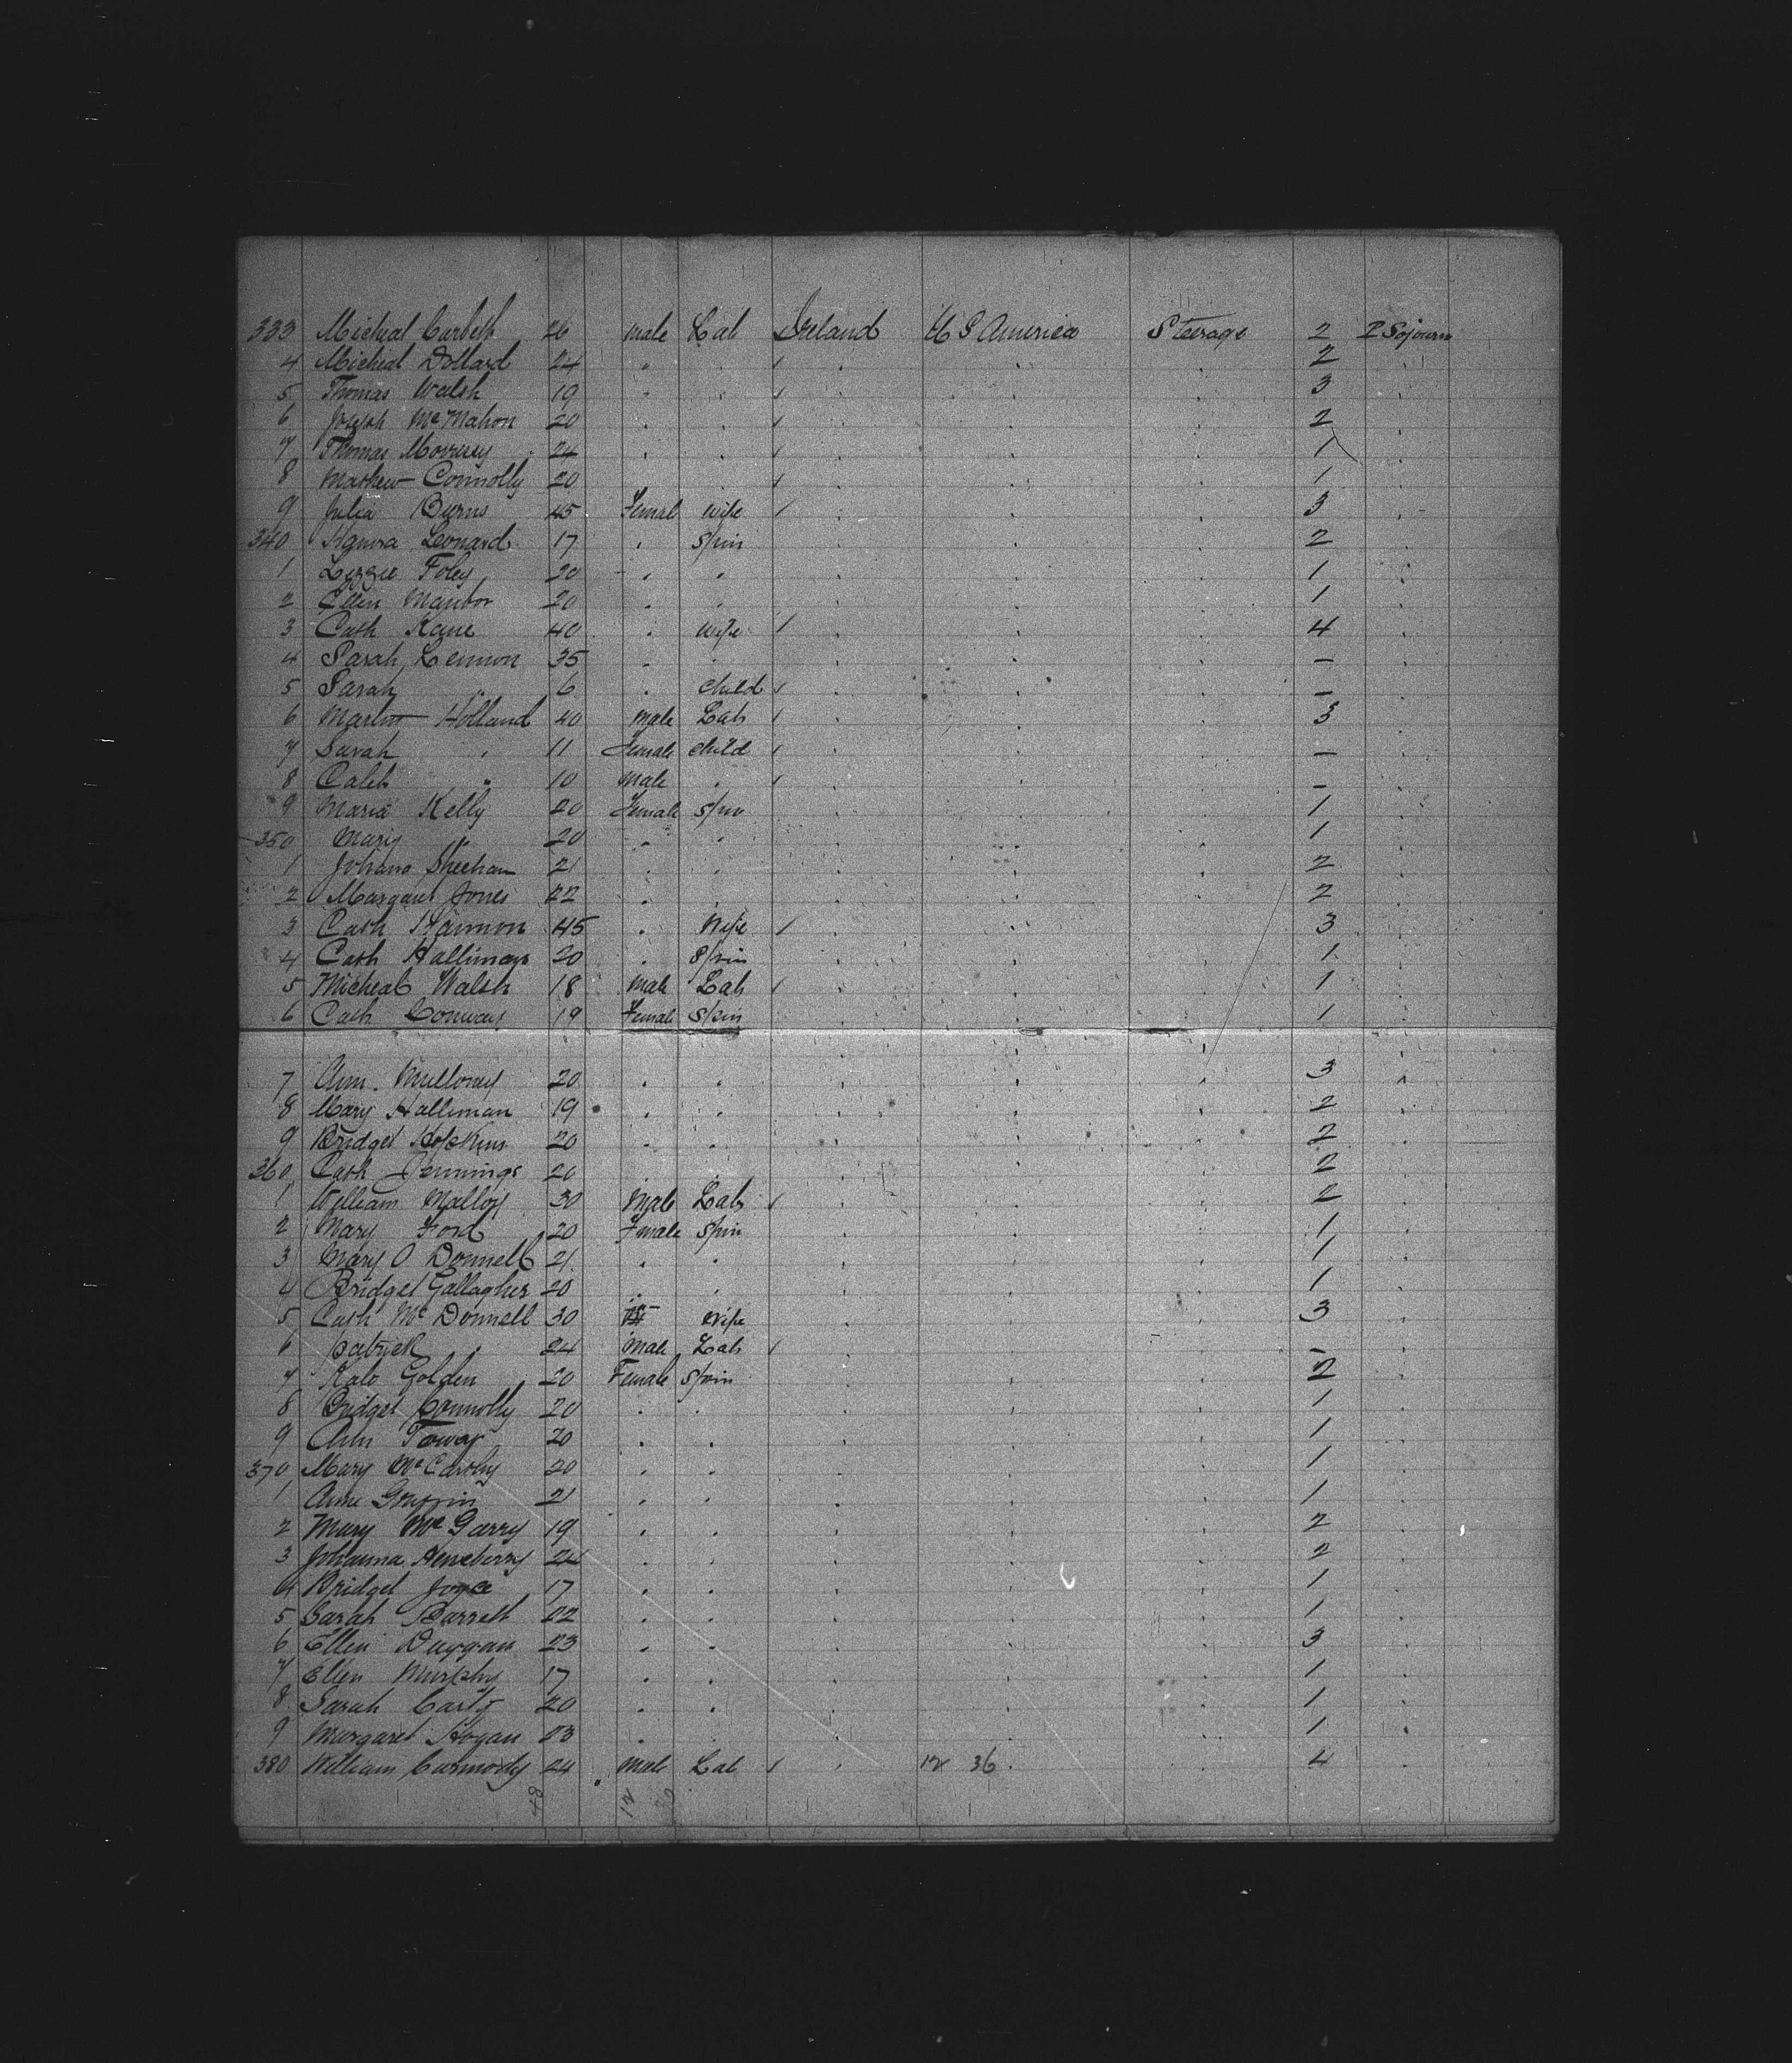 333 Micheal Carbett 26 male Lab Ireland U S America Steerage 2 P Sojourn
4 Micheal Dollard 24 " " / " " " 2 "
5 Thomas Walsh 19 " " / " " " 3 "
6 Joseph McMahon 20 " " / " " " 2 "
7 Thomas Morrisey 24 " " / " " " 1 "
8 Mathew Connolly 20 " / " " " 1 "
9 Julia Burns 45 Femal wife / " " " 3 "
340 Leonard 17 " Spin " " " 2 "
1 Lizzie Foley 20 " " " " " 1 "
2 Ellen 20 " " " " " 1 "
3 Cath Kane 40 " wife / " " " 4 "
4 Sarah Lennon 35 " " " " " — "
5 Sarah " 6 " child / " " " — "
6 Martin Holland 40 male Lab / " " " 3 "
7 Sarah " 11 Female child / " " " — "
8 Caleb " 10 male " / " " " — "
9 Maria Kelly 20 Female Spin " " " 1 "
350 Mary " 20 " " " " " 1 "
1 Johana Sheehan 21 " " " " " 2 "
2 Margaret Jones 22 " " " " " 2 "
3 Cath Hannon 45 " Wife / " " " 3 "
4 Cath 20 " Spin " " " 1 "
5 Micheal Walsh 18 male Lab / " " " 1 "
6 Cath Conway 19 Female Spin " " " 1 "
7 Ann Mulloney 20 " " " " " 3 "
8 Mary Halliman 19 " " " " " 2 "
9 Bridget Hopkins 20 " " " " " 2 "
360 Cath Jennings 20 " " " " " 2 "
1 William Malloy 30 Male Lab / " " " 2 "
2 Mary Ford 20 Female Spin " " " 1 "
3 Mary O Donnell 21 " " " " " 1 "
4 Bridget Gallagher 20 " " " " " 1 "
5 Cath McDonnell 30 " wife " " " 3 "
6 patrick " 24 Male Lab / " " " — "
7 Kate Golden 20 Female Spin " " " 2 "
8 Bridget Connolly 20 " " " " " 1 "
9 Ann Towey 20 " " " " " 1 "
370 Mary McCarthy 20 " " " " " 1 "
1 Anne Griffin 21 " " " " " 1 "
2 Mary McGarry 19 " " " " " 2 "
3 Johanna Heneberry 24 " " " " " 2 "
4 Bridget Joyce 17 " " " " " 1 "
5 Sarah Barrett 22 " " " " " 1 "
6 Ellen Duggan 23 " " " " " 3 "
7 Ellen Murphy 17 " " " " " 1 "
8 Sarah Carty 20 " " " " " 1 "
9 Margaret Hogan 23 " " " " " 1 "
380 William Carmody 24 Male Lab / " 12 36 " " 4 "
48 12